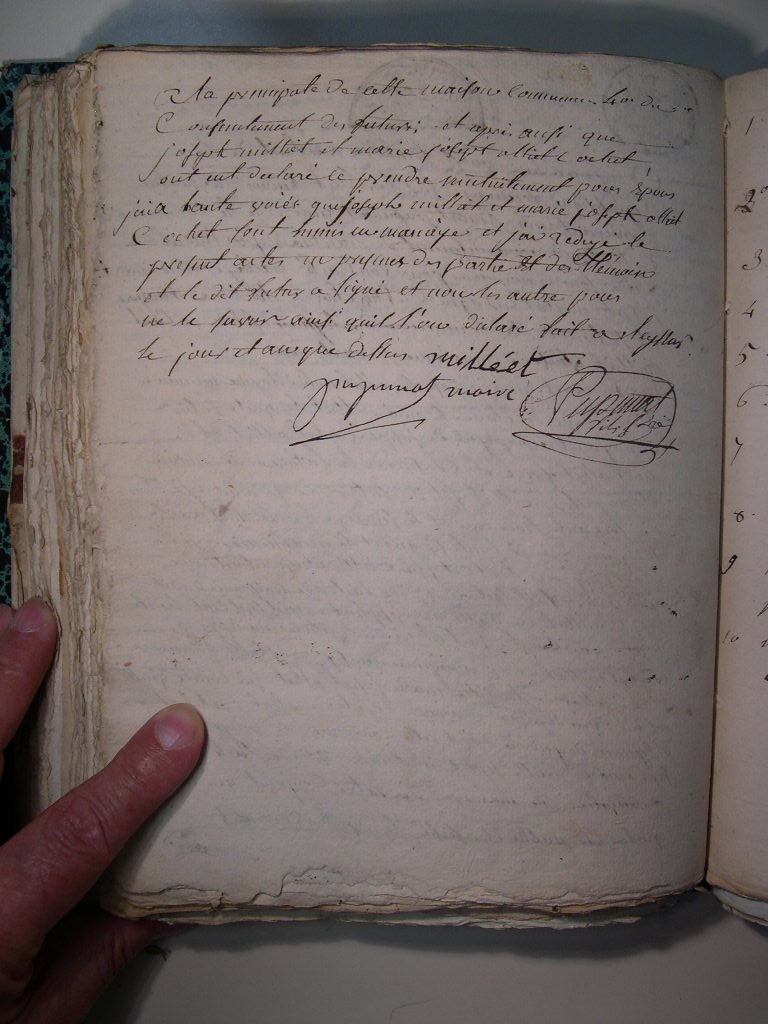 la principale de cette maison Commune du
Consentement des futurs; et après ausi que
joseph milliét et marie joseph alliét Cochet
ont eut declaré se prendre mutuélement pour Époux
jai a haute voiés que joseph milliét et marie joseph alliét
Cochet sont hunis en mariage et jai redigé le
present actes en presence des partie Et des témoin
et le dit futur a signé et non les autre pour
ne le savoir ainsi quil l'on déclaré fait a
le jour et an que dessus milléet
pupunat maire Pupunat
fils
1
2º
3
4
5
6
7
8
9
10